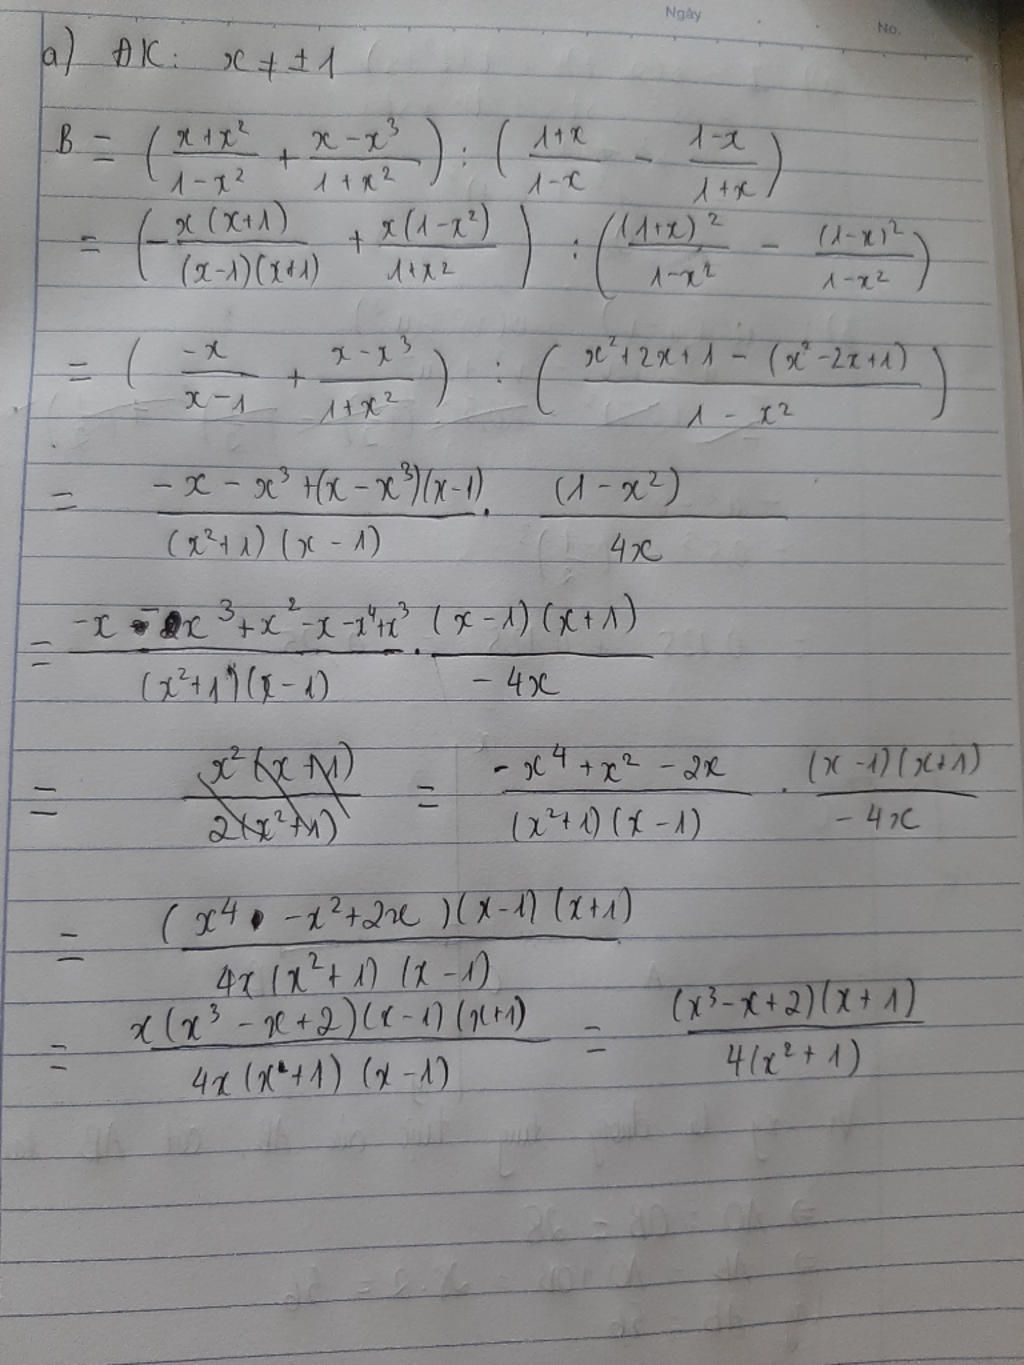 Ngày
No.
a) ĐK: x ≠ ±1
B = ( (x+x²)/(1-x²) + (x-x³)/(1+x²) ) : ( (1+x)/(1-x) - (1-x)/(1+x) )
= ( - x(x+1)/((x-1)(x+1)) + x(1-x²)/(1+x²) ) : ( (1+x)²/(1-x²) - (1-x)²/(1-x²) )
= ( -x/(x-1) + (x-x³)/(1+x²) ) : ( (x²+2x+1-(x²-2x+1))/(1-x²) )
= (-x-x³+(x-x³)(x-1))/((x²+1)(x-1)) . (1-x²)/4x
= (-x-x³+x²-x-x⁴+x³)/((x²+1)(x-1)) . (x-1)(x+1)/(-4x)
= x²(x+1)/(2(x²+1)) = (-x⁴+x²-2x)/((x²+1)(x-1)) . (x-1)(x+1)/(-4x)
= (x⁴-x²+2x)(x-1)(x+1)/(4x(x²+1)(x-1))
= x(x³-x+2)(x-1)(x+1)/(4x(x²+1)(x-1)) = (x³-x+2)(x+1)/(4(x²+1))